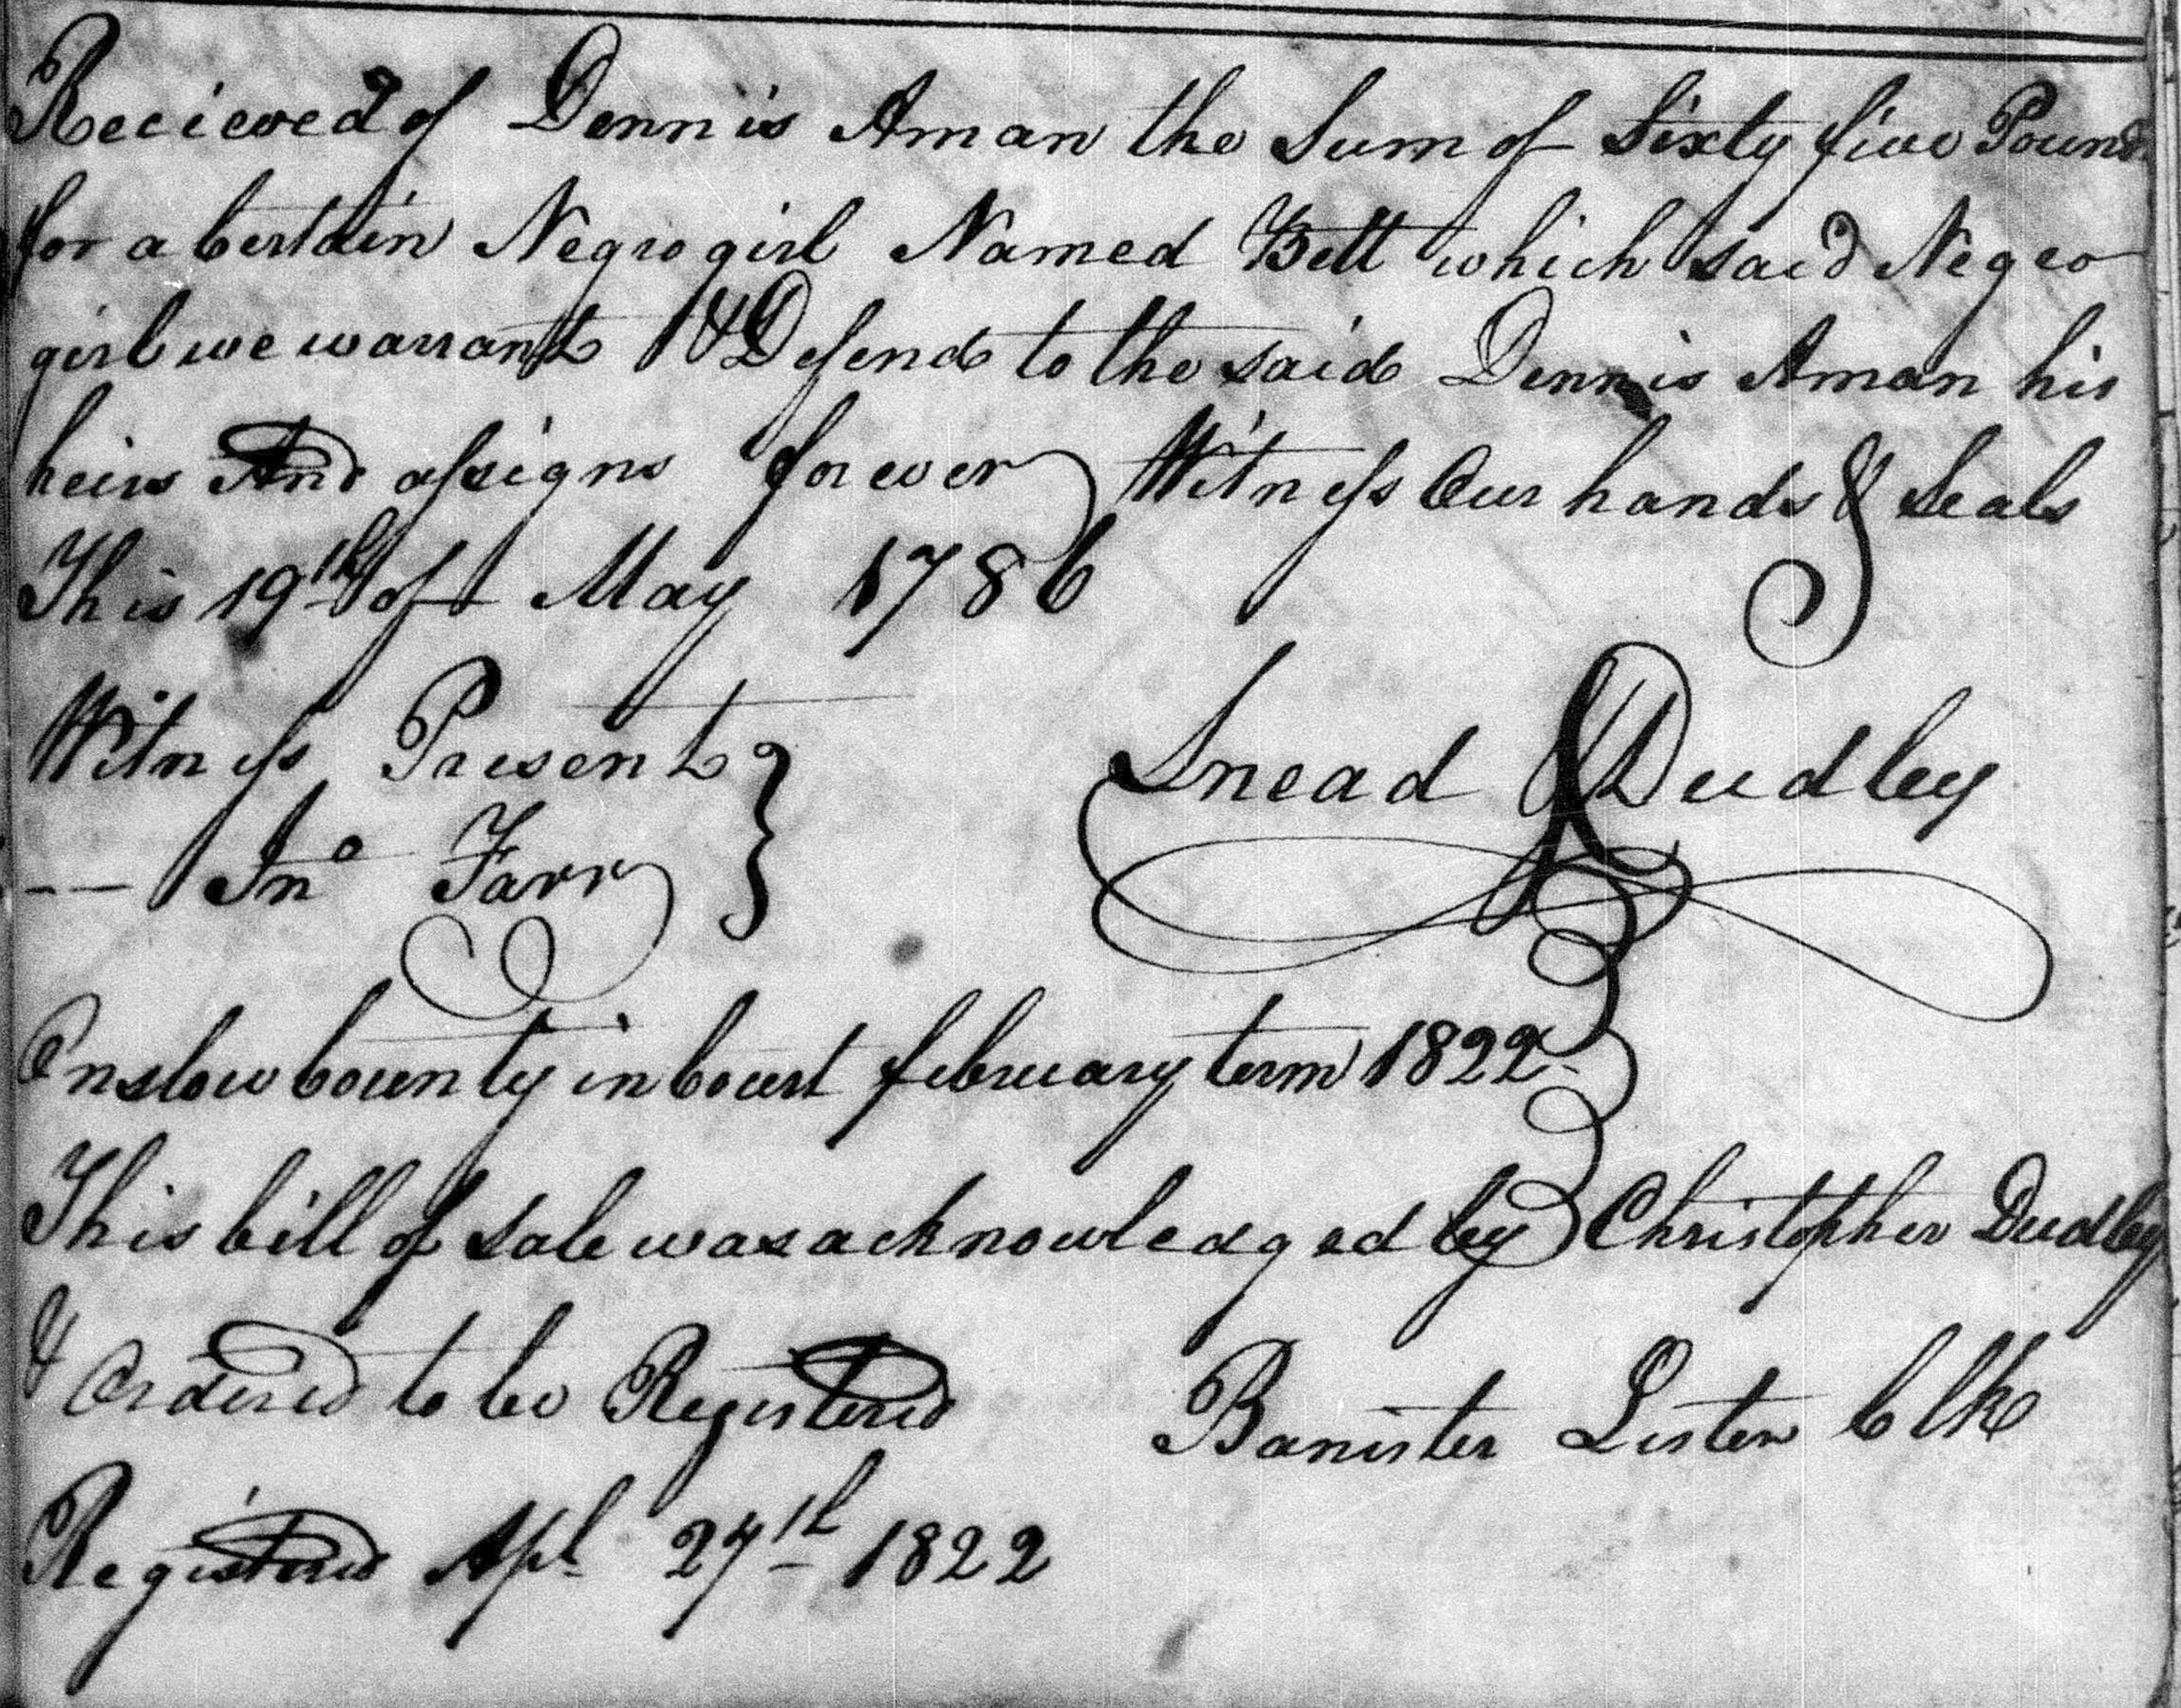 Recieved of Dennis Aman the Sum of Sixty five Pounds
for a Certain Negro girl Named Bett which said Negro
girl we warrant & Defend to the said Dennis Aman his
heirs And assigns forever Witness Our hands & Seals
This 19th of May 1786
Witness Present }
-- Jno Farr
Snead & Dudley
Onslow County in Court february term 1822
This bill of Sale was acknowledged by Christopher Dudley
& Ordered to be Registered
Banister Lester Clk
Registered Apl 27th 1822